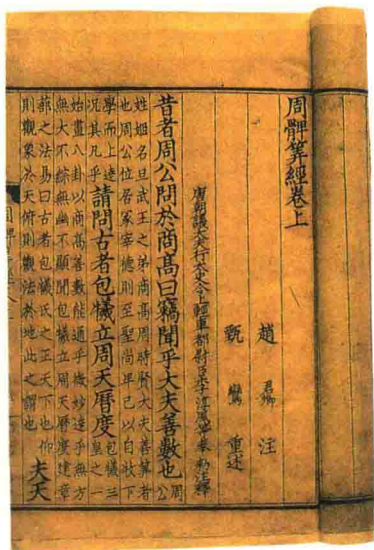 周髀筭經卷上
趙君卿注
甄鸞重述
唐朝議大夫行太史令上輕車都尉臣李淳風等奉勑注釋
昔者周公問於商高曰竊聞乎大夫善數也周公
姓姬名旦武王之弟商高周時賢大夫善筭者
也周公位居冢宰德則至聖尚卑己以自牧下
學而上達況其凡乎請問古者包犧立周天曆度包犧三皇之一
始畫八卦以商高善數能通乎微妙達乎無方
無大不綜無幽不顯聞包犧立周天曆度建章
蔀之法易曰古者包犧氏之王天下也仰
則觀象於天俯則觀法於地此之謂也夫天